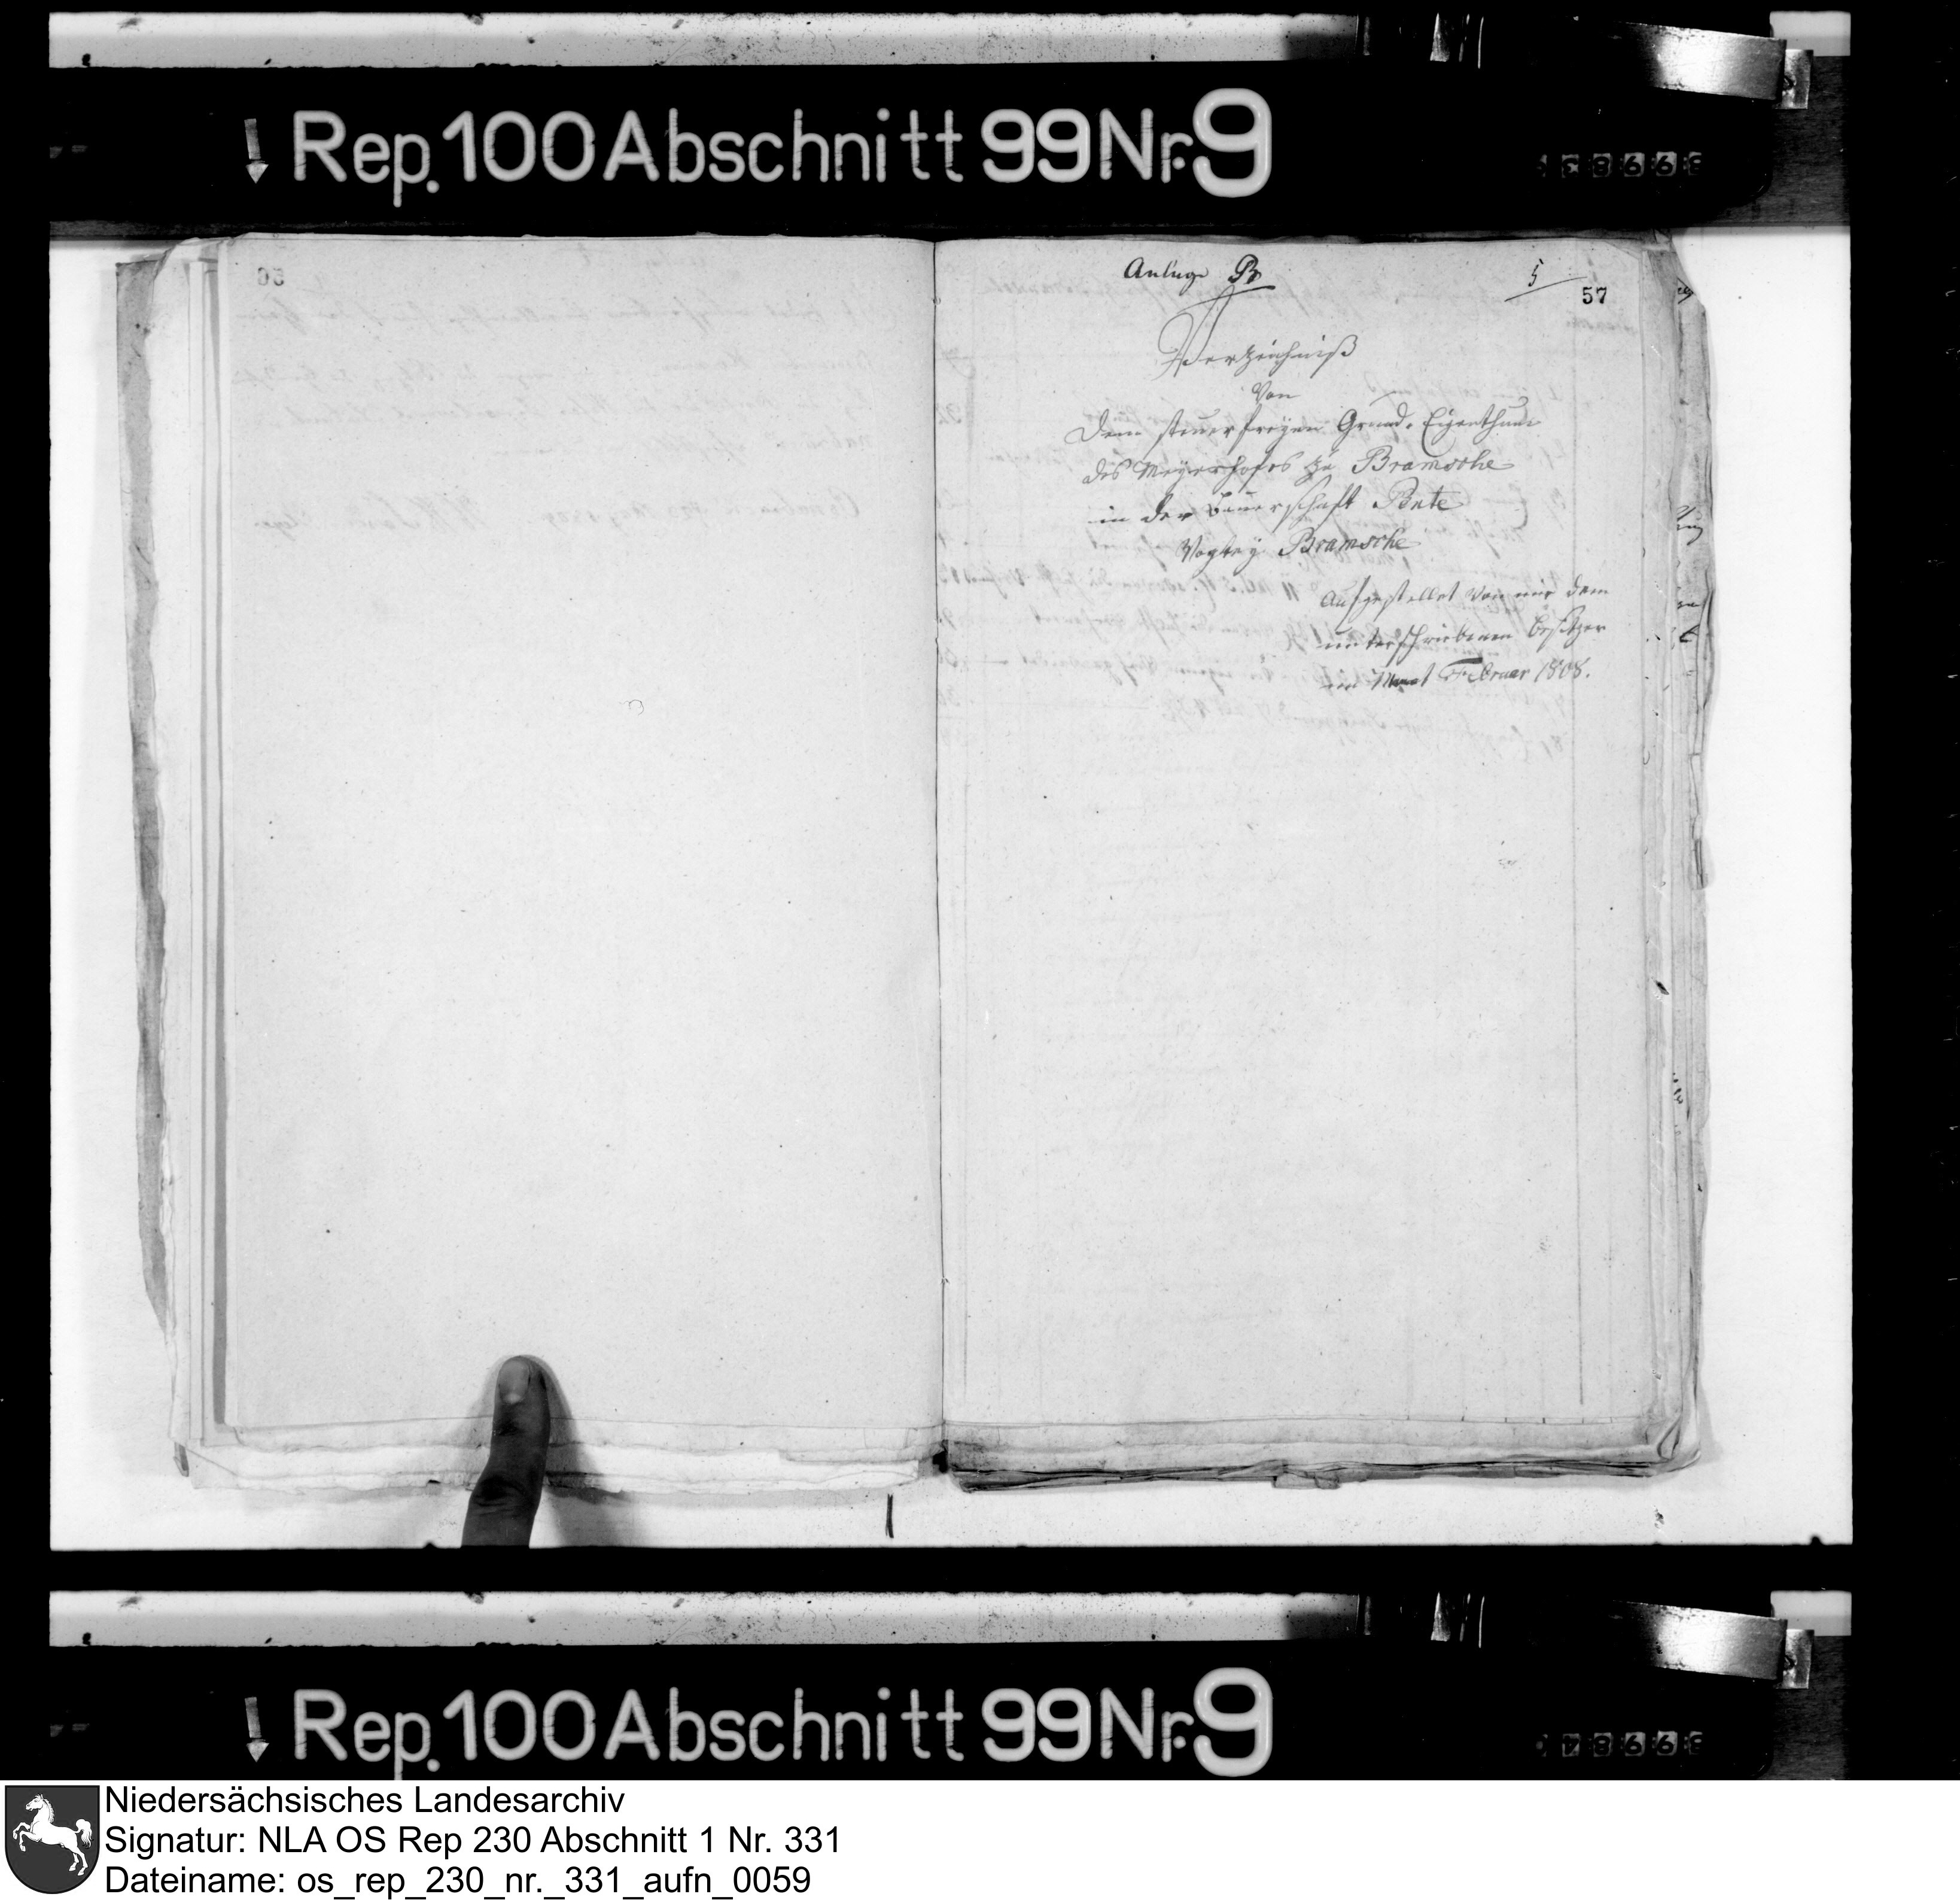 Rep. 100 Abschnitt 99 Nr. 9
Anlage B
5
57
Verzeichniß
von
dem steuerfreyen Grund-Eigenthum
des Meyerhofes zu Bramsche
in der Bauerschaft Pente
Vogtey Bramsche
Aufgestellet von mir dem
unterschriebenen Besitzer
im Monat Februar 1808.
Rep. 100 Abschnitt 99 Nr. 9
Niedersächsisches Landesarchiv
Signatur: NLA OS Rep 230 Abschnitt 1 Nr. 331
Dateiname: os_rep_230_nr._331_aufn_0059